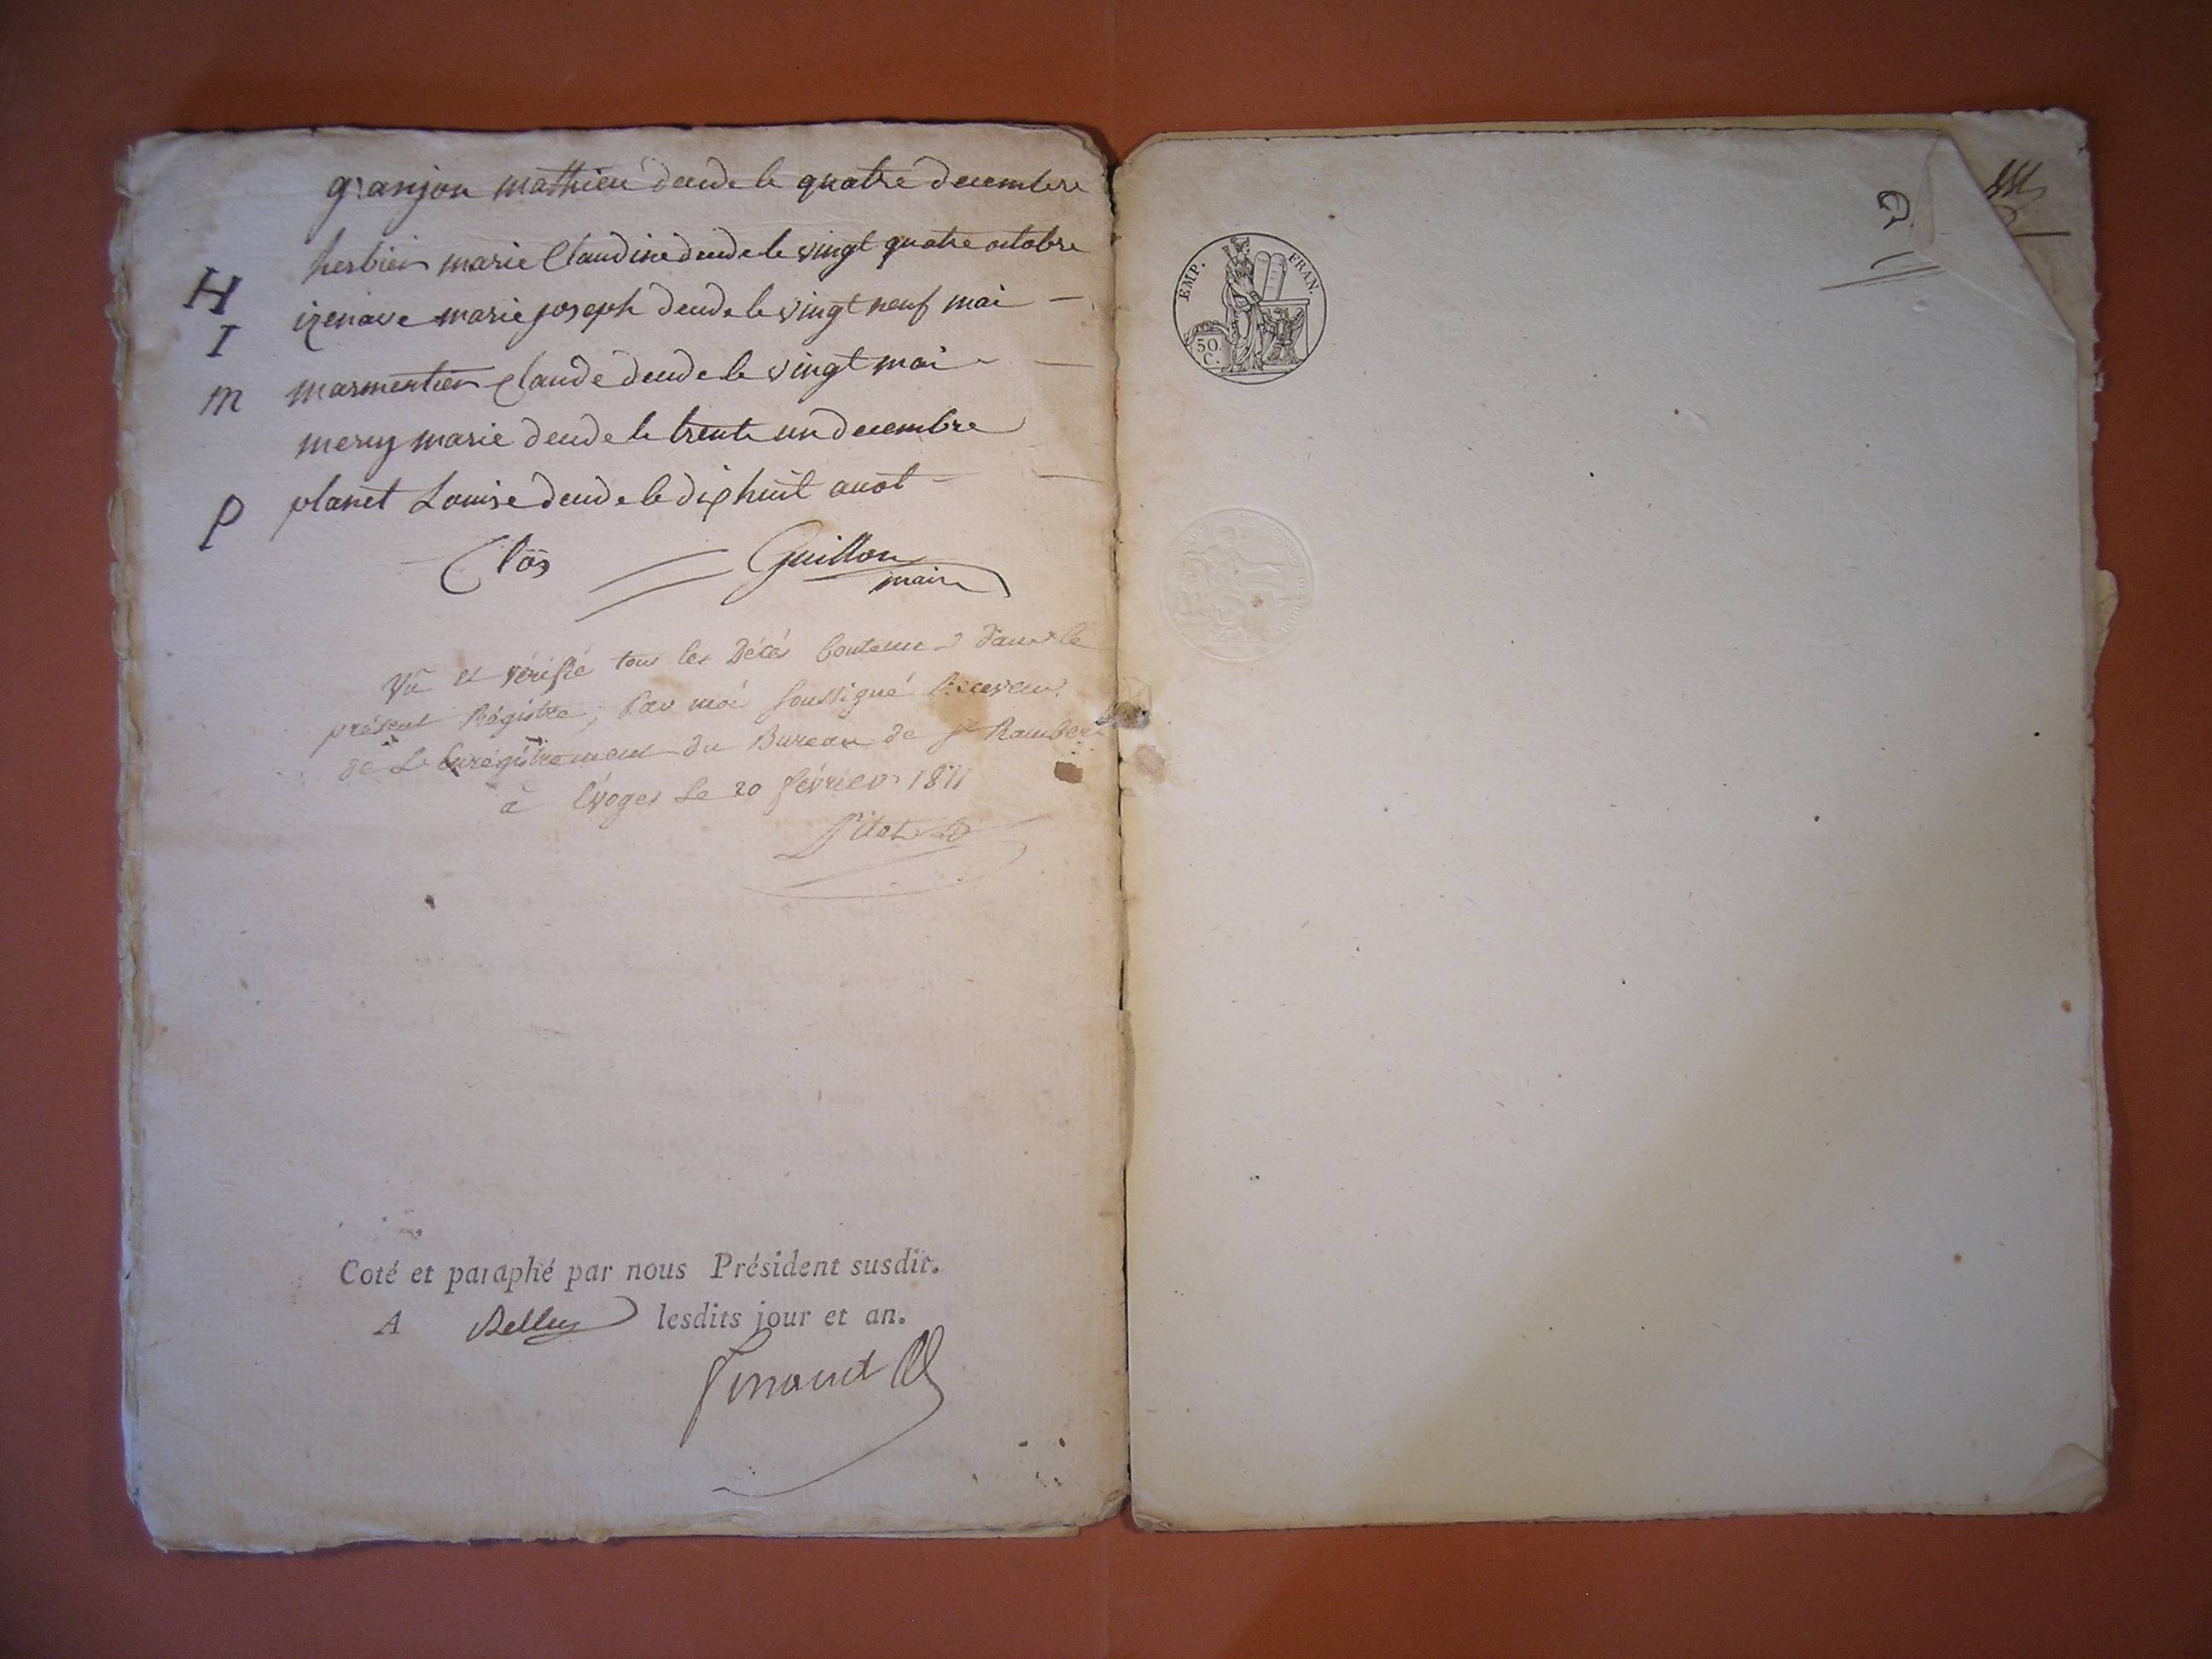 granjon mathieu decede le quatre decembre
H herbier marie Claudine decede le vingt quatre octobre
I izenave marie joseph decede le vingt neuf mai
m marmentier Claude decede le vingt mai
mercy marie decede le trente un decembre
P planet Louise decede le dix huit auot
Clos Guillon
maire
Vu et vérifié tous les Décés Contenus dans le
présent Régistre, Par moi Soussigné Receveur
de L'Enrégistrement du Bureau de St Rambert
à Evoges Le 20 février 1811
Coté et paraphé par nous Président susdit.
A Belley lesdits jour et an.
EMP. FRAN.
50.
C.